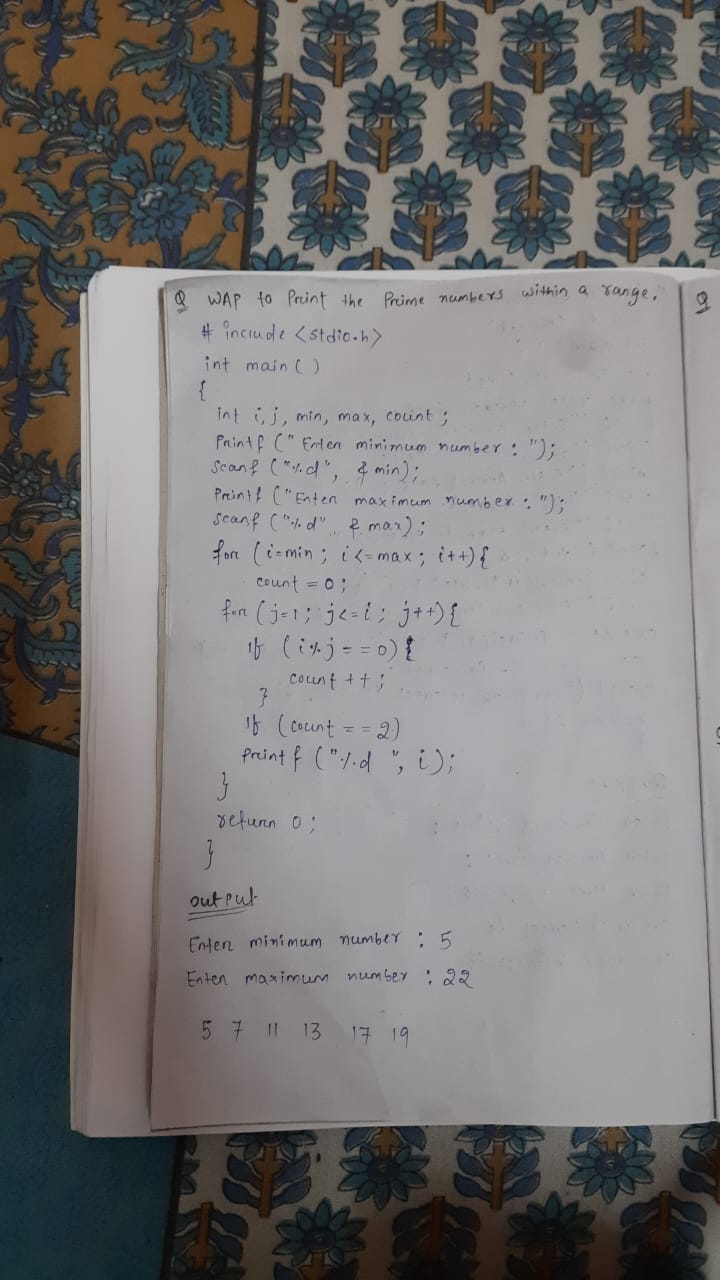 Q WAP to Print the Prime numbers within a range.
# include <stdio.h>
int main ( )
{
int i, j, min, max, count ;
Printf (" Enter minimum number : ");
Scanf ("%d", & min);
Printf ("Enter maximum number : ");
scanf ("%d" & max);
for (i=min ; i <= max ; i++) {
count = 0 ;
for (j=1 ; j<=i ; j++) {
if (i%j == 0) {
count ++ ;
}
if (count == 2)
Printf ("%d ", i);
}
return 0 ;
}
output
Enter minimum number : 5
Enter maximum number : 22
5 7 11 13 17 19
Q